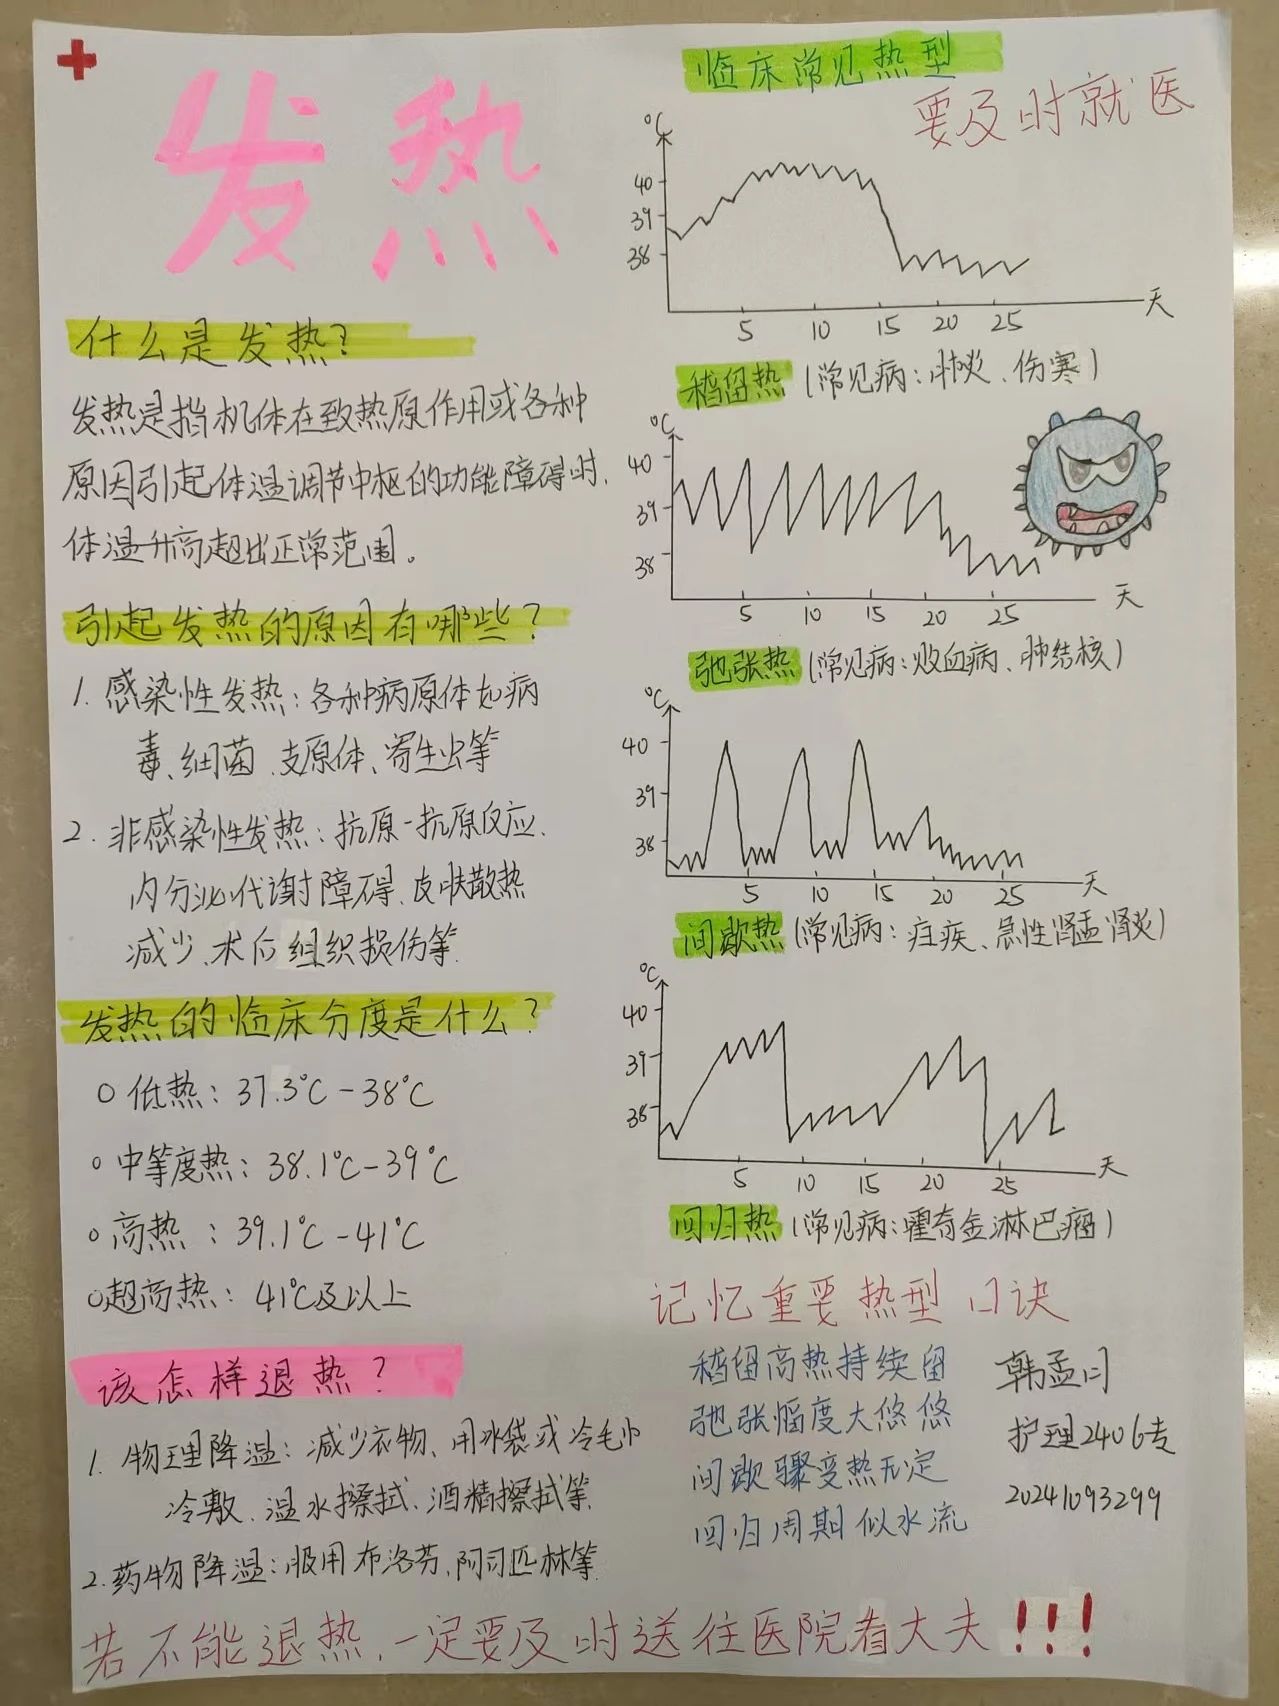 发热
什么是发热?
发热是指机体在致热原作用或各种
原因引起体温调节中枢的功能障碍时,
体温升高超出正常范围。
引起发热的原因有哪些?
1. 感染性发热: 各种病原体如病
毒、细菌、支原体、寄生虫等
2. 非感染性发热: 抗原-抗原反应、
内分泌代谢障碍、皮肤散热
减少、术后组织损伤等.
发热的临床分度是什么?
○ 低热: 37.3℃-38℃
○ 中等度热: 38.1℃-39℃
○ 高热: 39.1℃-41℃
○ 超高热: 41℃及以上
该怎样退热?
1. 物理降温: 减少衣物、用冰袋或冷毛巾
冷敷、温水擦拭、酒精擦拭等.
2. 药物降温: 服用布洛芬、阿司匹林等.
临床常见热型
要及时就医
℃
40
39
38
5 10 15 20 25 天
稽留热 (常见病: 肺炎、伤寒)
℃
40
39
38
5 10 15 20 25 天
弛张热 (常见病: 败血病、肺结核)
℃
40
39
38
5 10 15 20 25 天
间歇热 (常见病: 疟疾、急性肾盂肾炎)
℃
40
39
38
5 10 15 20 25 天
回归热 (常见病: 霍奇金淋巴瘤)
记忆重要热型口诀
稽留高热持续留
弛张幅度大悠悠
间歇骤变热无定
回归周期似水流
韩孟闫
护理2406专
20241093299
若不能退热,一定要及时送往医院看大夫!!!